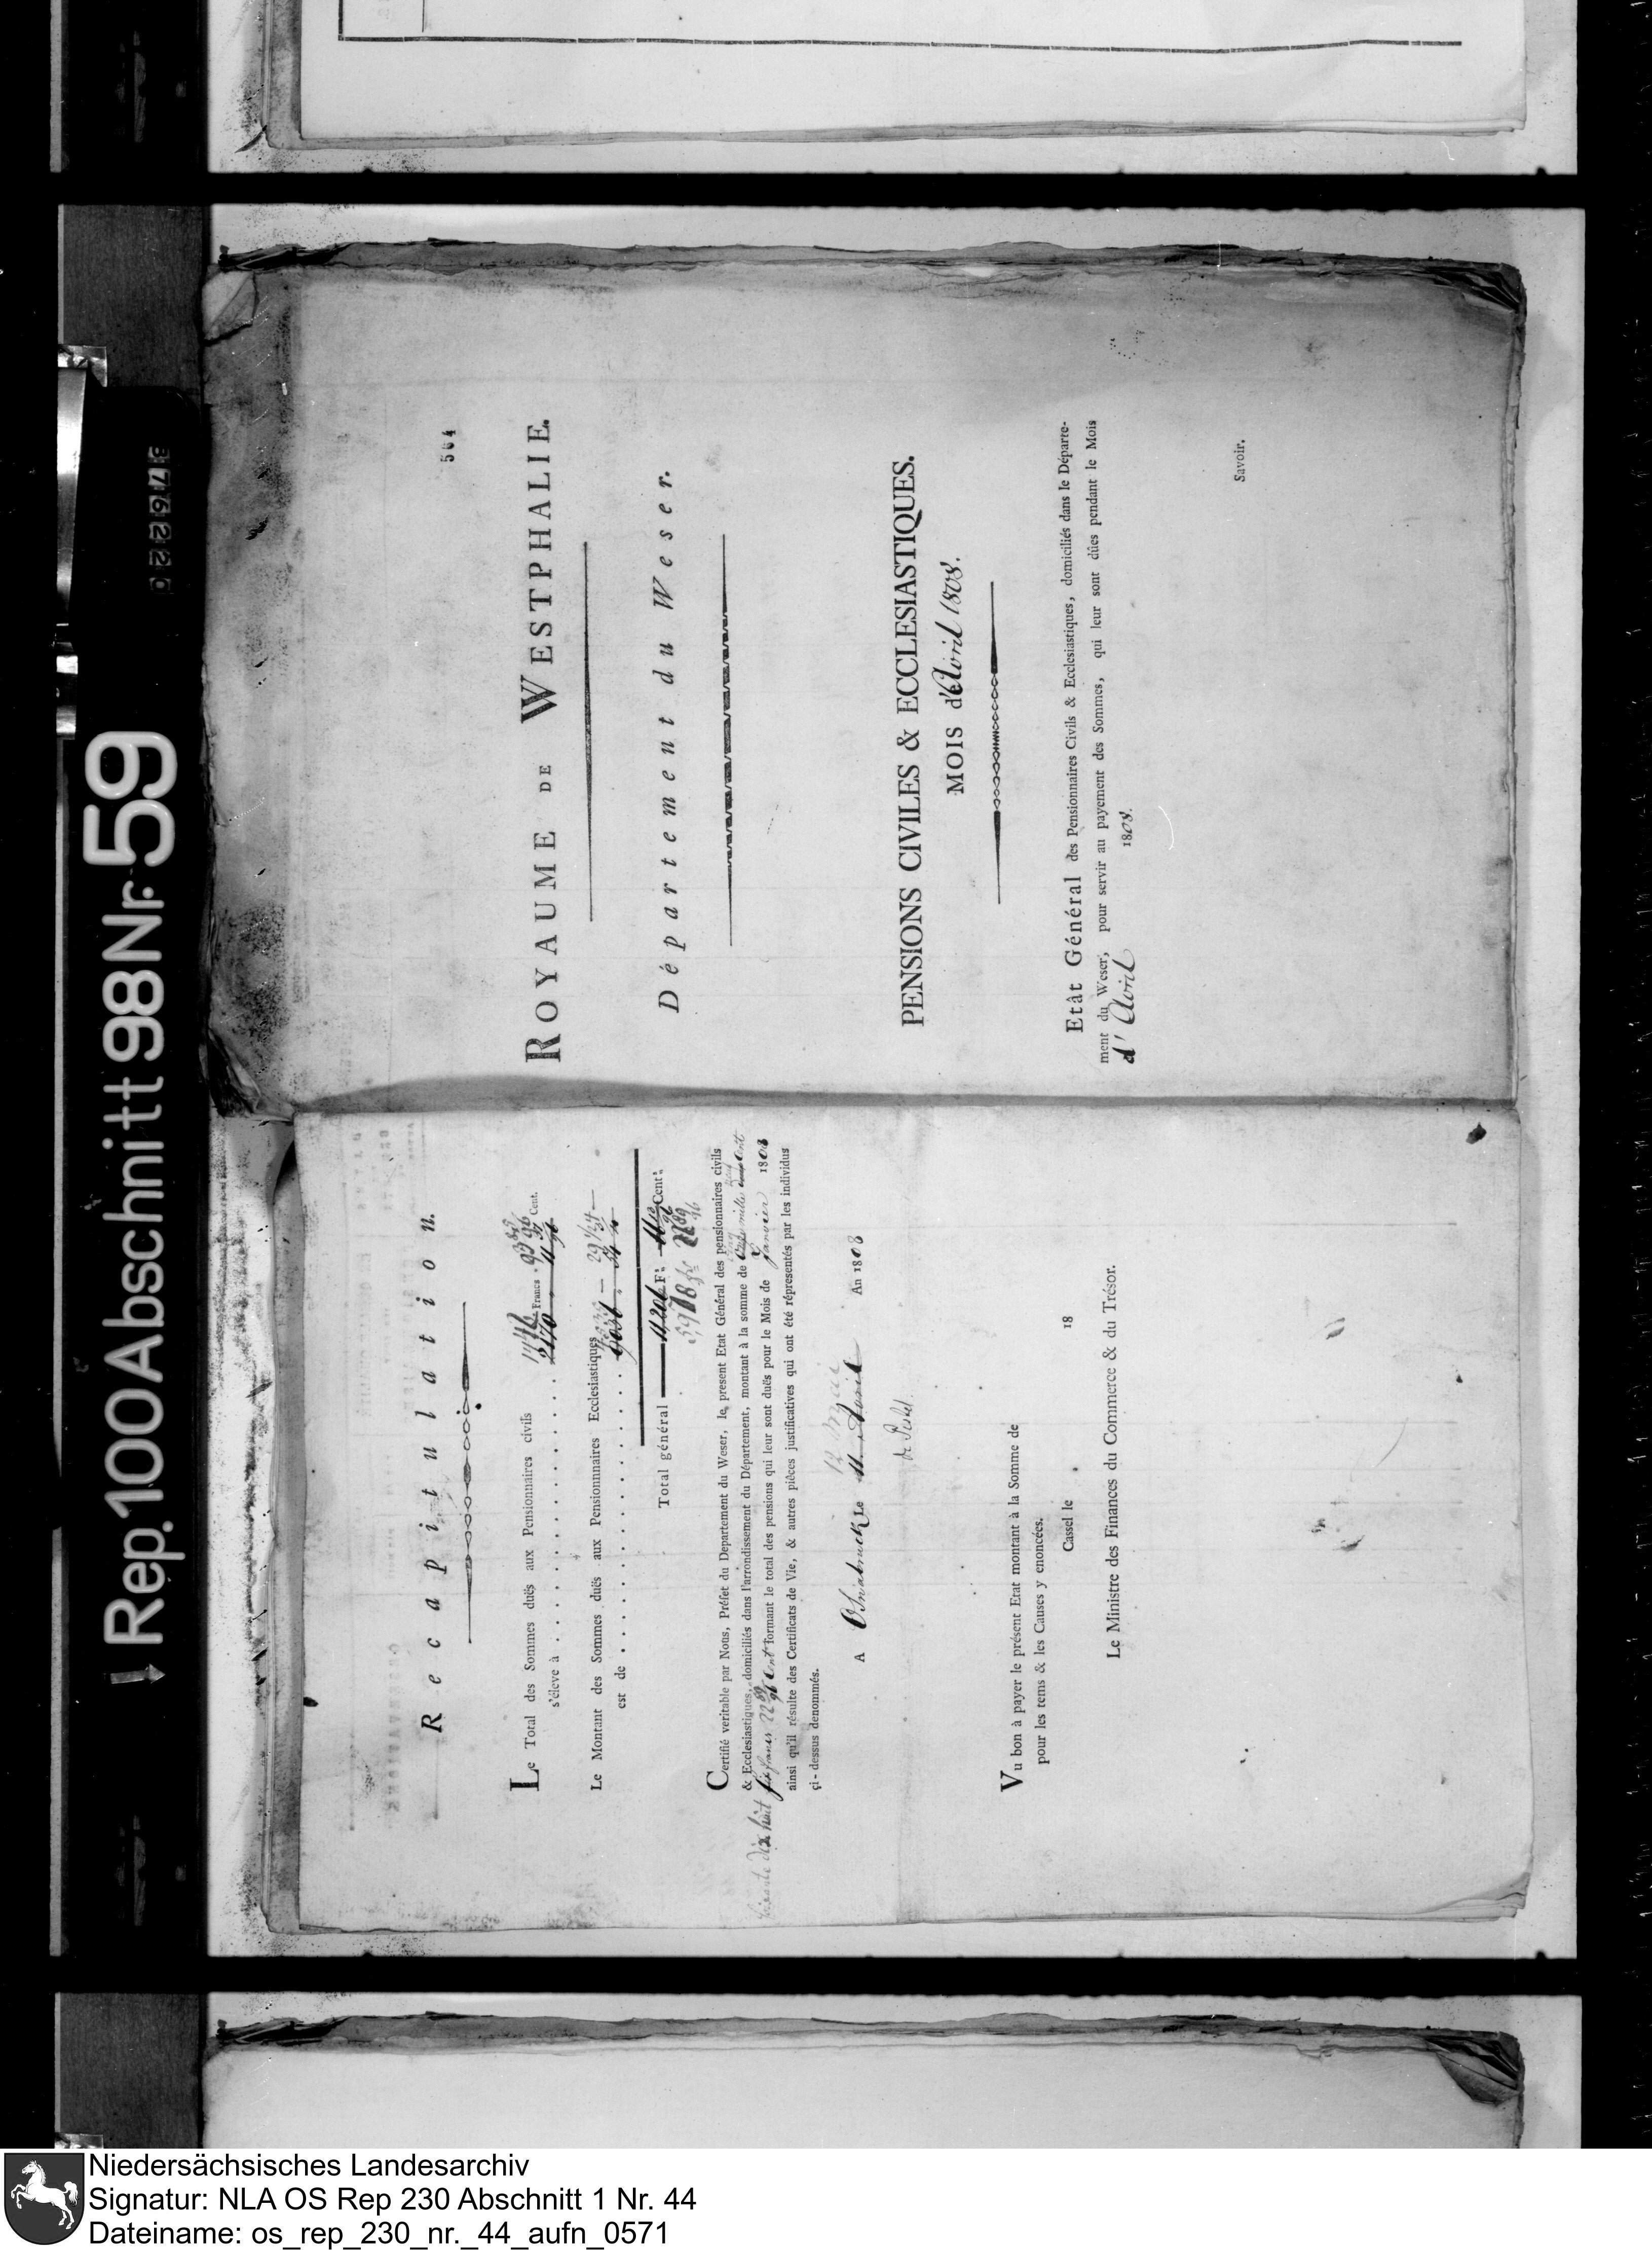 Rep. 100 Abschnitt 98 Nr. 59
Recapitulation.
Le Total des Sommes duës aux Pensionnaires civils
s'éleve à . . . . . . . . . . Francs Cent.
Le Montant des Sommes duës aux Pensionnaires Ecclesiastiques
est de . . . . . . . . . .
Total général
Certifié veritable par Nous, Préfet du Departement du Weser, le present Etat Général des pensionnaires civils
& Ecclesiastiques, domiciliés dans l'arrondissement du Département, montant à la somme de
formant le total des pensions qui leur sont duës pour le Mois de Janvier 1808
ainsi qu'il résulte des Certificats de Vie, & autres piéces justificatives qui ont été réprésentés par les individus
çi-dessus denommés.
A Osnabruck Le An 1808
Vu bon à payer le présent Etat montant à la Somme de
pour les tems & les Causes y enoncées.
Cassel le 18
Le Ministre des Finances du Commerce & du Trésor.
564
ROYAUME DE WESTPHALIE.
Département du Weser.
PENSIONS CIVILES & ECCLESIASTIQUES.
MOIS d'Avril 1808.
Etât Général des Pensionnaires Civils & Ecclesiastiques, domiciliés dans le Départe-
ment du Weser, pour servir au payement des Sommes, qui leur sont dûes pendant le Mois
d'Avril 1808.
Savoir.
Niedersächsisches Landesarchiv
Signatur: NLA OS Rep 230 Abschnitt 1 Nr. 44
Dateiname: os_rep_230_nr._44_aufn_0571